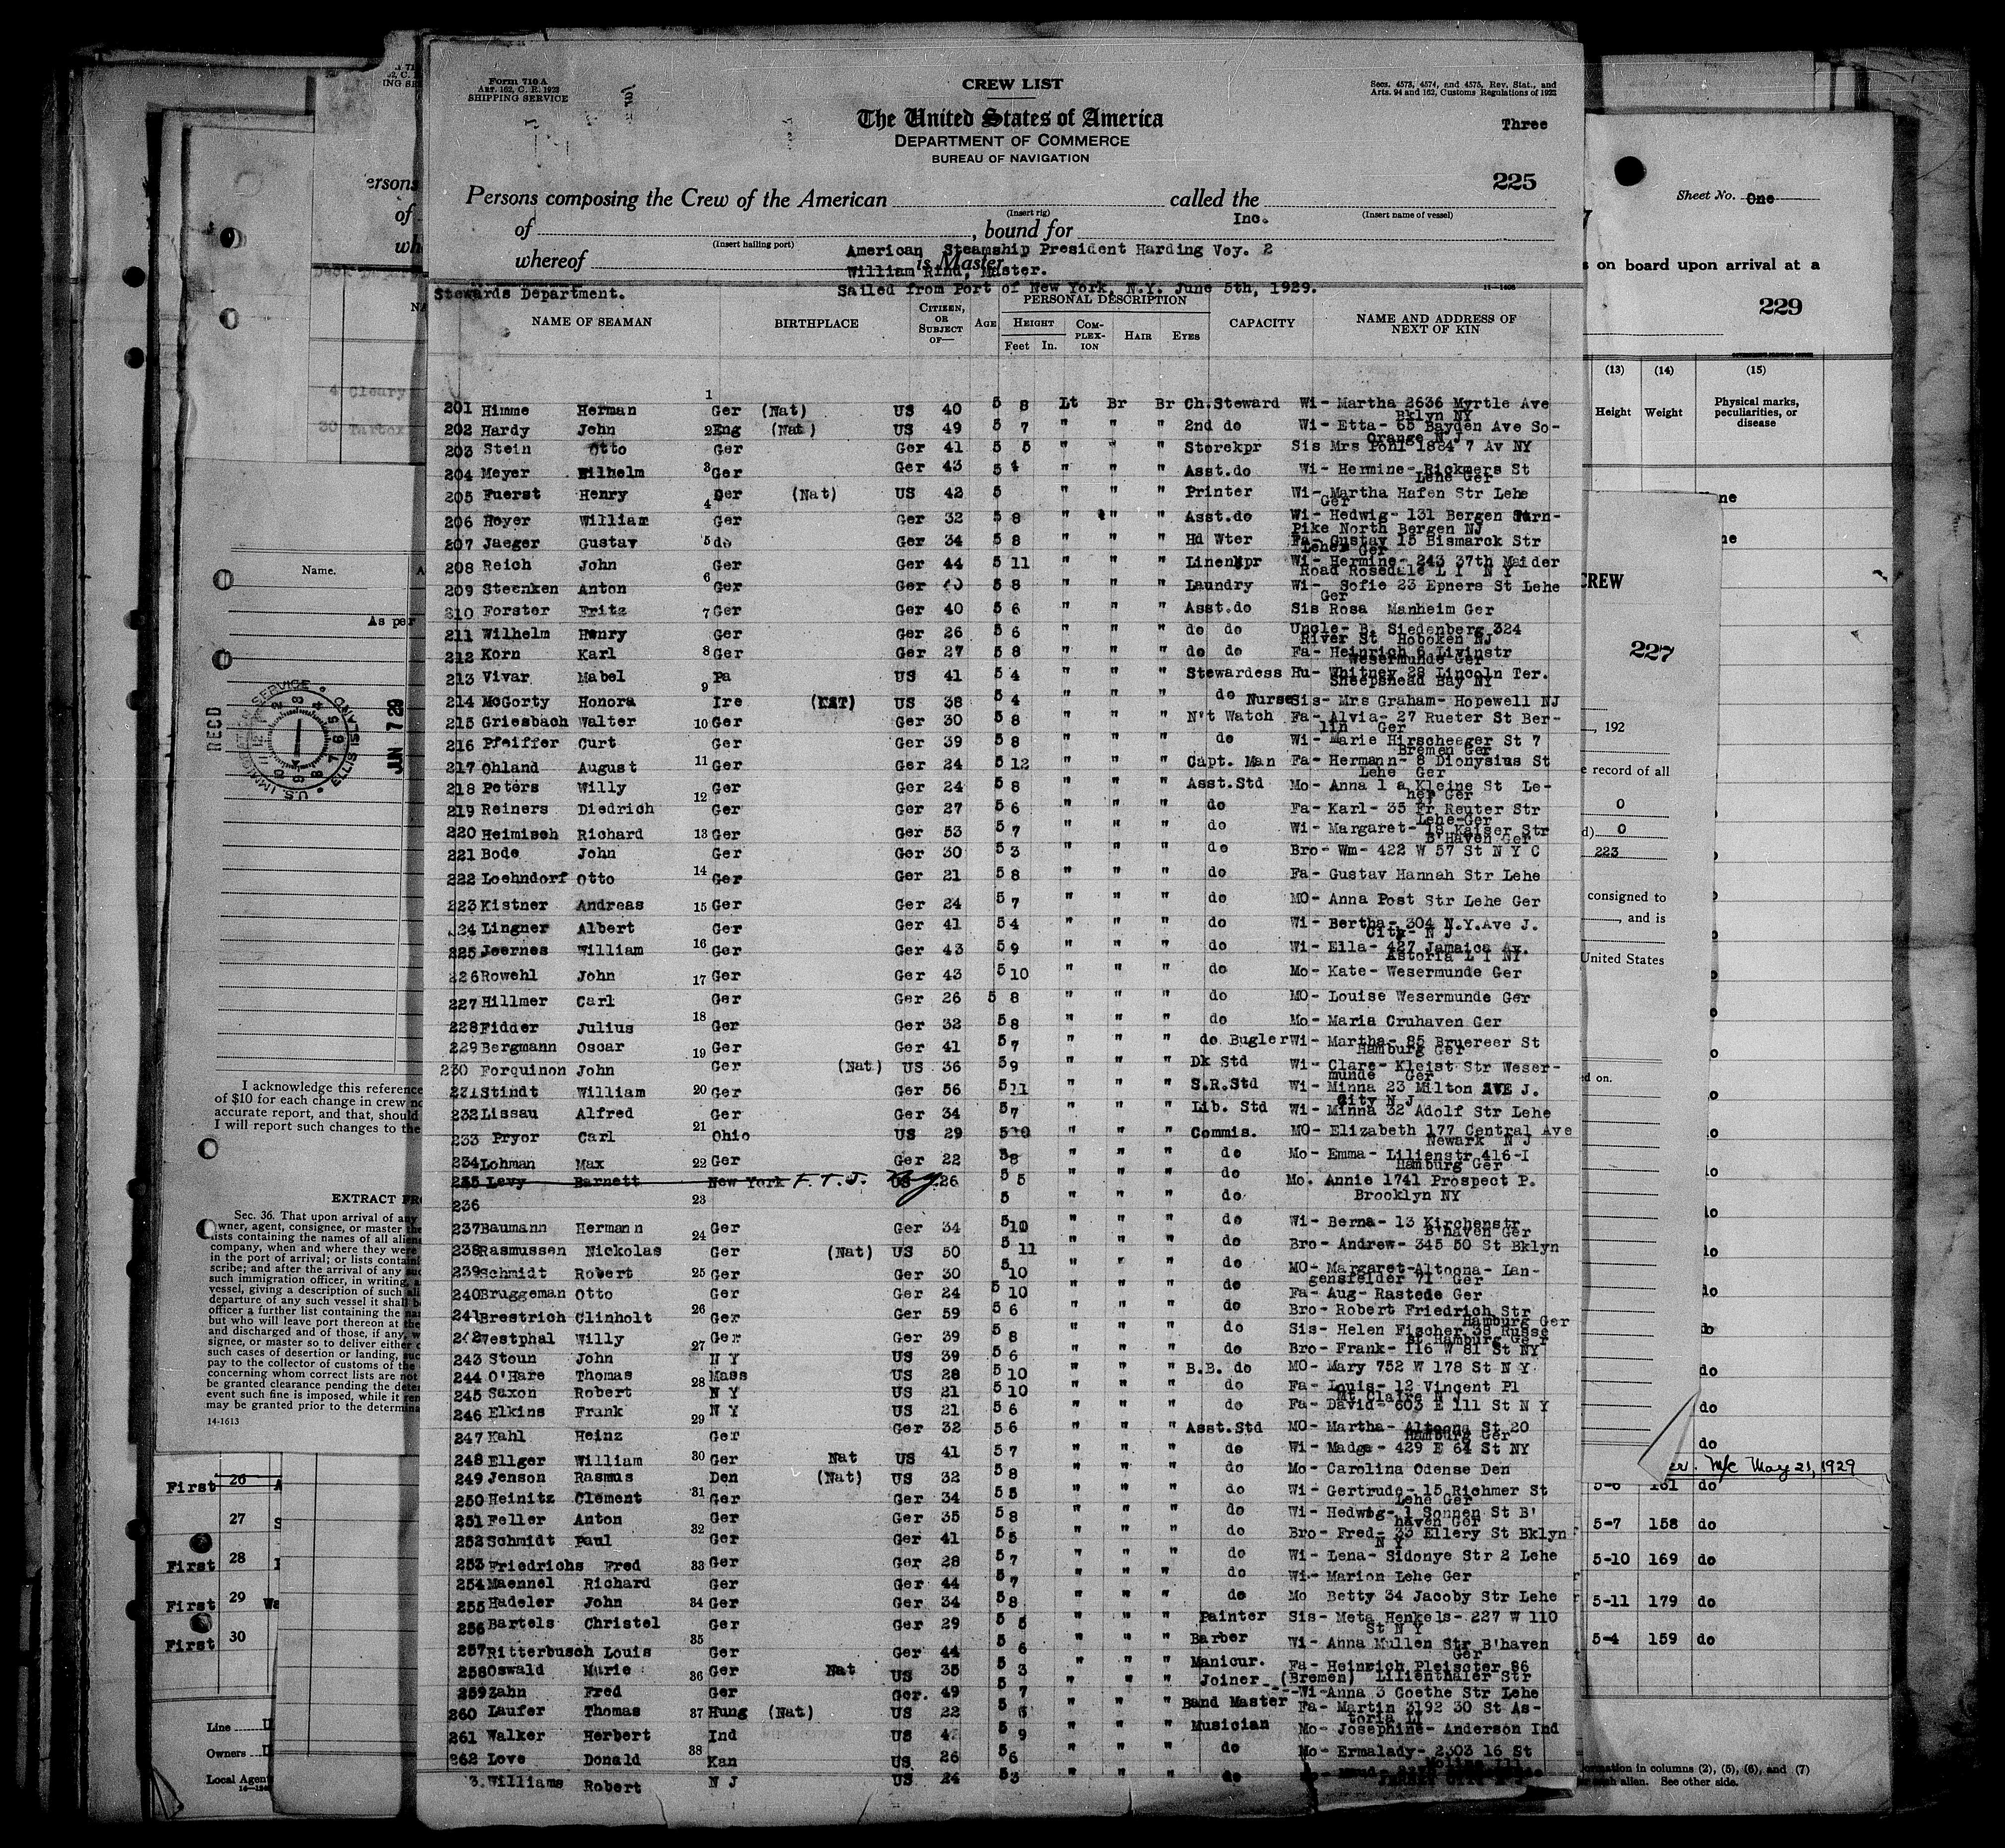 Form 710 A
Art. 162, C. R. 1923
SHIPPING SERVICE
CREW LIST
Secs. 4573, 4574, and 4575, Rev. Stat., and
Arts. 94 and 162, Customs Regulations of 1922
The United States of America
Three
DEPARTMENT OF COMMERCE
BUREAU OF NAVIGATION
225
Persons composing the Crew of the American called the
(Insert rig) (Insert name of vessel)
Inc.
of , bound for
(Insert hailing port)
American Steamship President Harding Voy. 2
whereof is Master
William Rind, Master.
Stewards Department. Sailed from Port of New York, N.Y. June 5th, 1929.
NAME OF SEAMAN BIRTHPLACE CITIZEN, OR SUBJECT OF— AGE PERSONAL DESCRIPTION HEIGHT Feet In. COMPLEXION HAIR EYES CAPACITY NAME AND ADDRESS OF NEXT OF KIN
201 Himme Herman 1 Ger (Nat) US 40 5 8 Lt Br Br Ch.Steward Wi- Martha 2636 Myrtle Ave
Bklyn NY
202 Hardy John 2 Eng (Nat) US 49 5 7 " " " 2nd do Wi- Etta- 65 Bayden Ave So-
Orange N J
203 Stein Otto Ger Ger 41 5 5 " " " Storekpr Sis Mrs Pohl 1884 7 Av NY
204 Meyer Wilhelm 3 Ger Ger 43 5 4 " " " Asst.do Wi- Hermine- Rickmers St
Lehe Ger
205 Fuerst Henry 4 Ger (Nat) US 42 5 " " " Printer Wi- Martha Hafen Str Lehe
Ger
206 Hoyer William Ger Ger 32 5 8 " " " Asst.do Wi- Hedwig- 131 Bergen Turn-
Pike North Bergen NJ
207 Jaeger Gustav 5 do Ger 34 5 8 " " " Hd Wter Fa- Gustav 15 Bismarck Str
Lehe Ger
208 Reich John Ger Ger 44 5 11 " " " Linenkpr Wi- Hermine- 243 37th Maider
Road Rosedale L I N Y
209 Steenken Anton 6 Ger Ger 40 5 8 " " " Laundry Wi- Sofie 23 Epners St Lehe
Ger
210 Forster Fritz 7 Ger Ger 40 5 6 " " " Asst.do Sis Rosa Manheim Ger
211 Wilhelm Henry Ger Ger 26 5 6 " " " do do Uncle- B. Siedenberg 324
River St Hoboken NJ
212 Korn Karl 8 Ger Ger 27 5 8 " " " do do Fa- Heinrich 6 Livinstr
Wesermunde Ger
213 Vivar Mabel 9 Pa US 41 5 4 " " " Stewardess Hu- Whitney 28 Lincoln Ter.
Sheepshead Bay NY
214 McGorty Honora Ire (NAT) US 38 5 4 " " " do Nurse Sis- Mrs Graham- Hopewell NJ
215 Griesbach Walter 10 Ger Ger 30 5 8 " " " N't Watch Fa- Alvia- 27 Rueter St Ber-
lin Ger
216 Pfeiffer Curt Ger Ger 39 5 8 " " " do Wi- Marie Hirscheeger St 7
Bremen Ger
217 Ohland August 11 Ger Ger 24 5 12 " " " Capt. Man Fa- Hermann- 8 Dionysius St
Lehe Ger
218 Peters Willy 12 Ger Ger 24 5 8 " " " Asst.Std Mo- Anna 1 a Kleine St Le-
her Ger
219 Reiners Diedrich Ger Ger 27 5 6 " " " do Fa- Karl- 35 Fr Reuter Str
Lehe-Ger
220 Heimisch Richard 13 Ger Ger 53 5 7 " " " do Wi- Margaret- 18 Kaiser Str
B'Haven Ger
221 Bode John Ger Ger 30 5 3 " " " do Bro- Wm- 422 W 57 St N Y C
222 Loehndorf Otto 14 Ger Ger 21 5 8 " " " do Fa- Gustav Hannah Str Lehe
223 Kistner Andreas 15 Ger Ger 24 5 7 " " " do MO- Anna Post Str Lehe Ger
24 Lingner Albert Ger Ger 41 5 4 " " " do Wi- Bertha- 304 N.Y.Ave J.
City- N J
225 Joernes William 16 Ger Ger 43 5 9 " " " do Wi- Ella- 427 Jamaica Av.
Astoria L I NY
226 Rowehl John 17 Ger Ger 43 5 10 " " " do Mo- Kate- Wesermunde Ger
227 Hillmer Carl Ger Ger 26 5 8 " " " do MO- Louise Wesermunde Ger
228 Fidder Julius 18 Ger Ger 32 5 8 " " " do Mo- Maria Cruhaven Ger
229 Bergmann Oscar 19 Ger Ger 41 5 7 " " " do Bugler Wi- Martha- 85 Bruereer St
Hamburg Ger
230 Forquinon John Ger (Nat) US 36 5 9 " " " Dk Std Wi- Clare- Kleist Str Weser-
munde Ger
231 Stindt William 20 Ger Ger 56 5 11 " " " S.R.Std Wi- Minna 23 Milton AVE J.
City N J
232 Lissau Alfred Ger Ger 34 5 7 " " " Lib. Std Wi- Minna 32 Adolf Str Lehe
233 Pryor Carl 21 Ohio US 29 5 10 " " " Commis. MO- Elizabeth 177 Central Ave
Newark N J
234 Lohman Max 22 Ger Ger 22 5 8 " " " do Mo- Emma- Lilienstr 416-I
Hamburg Ger
235 Levy Barnett New York F.T.J. US 26 5 5 " " " do Mo. Annie 1741 Prospect P.
236 23 5 " " " do Brooklyn NY
237 Baumann Hermann Ger Ger 34 5 10 " " " do Wi- Berna- 13 Kirchenstr
B'haven Ger
238 Rasmussen Nickolas 24 Ger (Nat) US 50 5 11 " " " do Bro- Andrew- 345 50 St Bklyn
239 Schmidt Robert 25 Ger Ger 30 5 10 " " " do MO- Margaret-Altoona- Lan-
gensfelder 71 Ger
240 Bruggeman Otto Ger Ger 24 5 10 " " " do Fa- Aug- Rastede Ger
241 Brestrich Clinholt 26 Ger Ger 59 5 6 " " " do Bro- Robert Friedrich Str
Hamburg Ger
242 Westphal Willy 27 Ger Ger 39 5 8 " " " do Sis- Helen Fischer 38 Russe
st Hamburg Ger
243 Stoun John N Y US 39 5 6 " " " do Bro- Frank- 116 W 81 St NY
244 O'Hare Thomas 28 Mass US 28 5 10 " " " B.B. do MO- Mary 752 W 178 St N Y
245 Saxon Robert N Y US 21 5 10 " " " do Fa- Louis- 12 Vincent Pl
Mt Claire N J
246 Elkins Frank 29 N Y US 21 5 6 " " " do Fa- David- 603 E 111 St N Y
247 Kahl Heinz Ger Ger 32 5 6 " " " Asst.Std MO- Martha- Altoona St 20
Hamburg Ger
248 Ellger William 30 Ger Nat US 41 5 7 " " " do Wi- Madge- 429 E 64 St NY
249 Jenson Rasmus Den (Nat) US 32 5 8 " " " do Mo- Carolina Odense Den
250 Heinitz Clement 31 Ger Ger 34 5 5 " " " do Wi- Gertrude- 15 Richmer St
Lehe Ger
251 Feller Anton Ger Ger 35 5 8 " " " do Wi- Hedwig- 1 Sonnen St B'
haven Ger
252 Schmidt Paul 32 Ger Ger 41 5 5 " " " do Bro- Fred- 33 Ellery St Bklyn
N Y
253 Friedrichs Fred 33 Ger Ger 28 5 7 " " " do Wi- Lena- Sidonye Str 2 Lehe
254 Maennel Richard Ger Ger 44 5 7 " " " do Wi- Marion Lehe Ger
255 Hadeler John 34 Ger Ger 34 5 8 " " " do Mo Betty 34 Jacoby Str Lehe
256 Bartels Christel Ger Ger 29 5 5 " " " Painter Sis- Meta Henkels- 227 W 110
St N Y
257 Ritterbusch Louis 35 Ger Ger 44 5 6 " " " Barber Wi- Anna Mullen Str B'haven
Ger
258 Oswald Marie 36 Ger Nat US 35 5 3 " " " Manicur. Fa- Heinrich Pleisoter 86
(Bremen) Lilienthaler Str
259 Zahn Fred Ger Ger. 49 5 7 " " " Joiner Wi-Anna 3 Goethe Str Lehe
260 Laufer Thomas 37 Hung (Nat) US 22 5 " " " Band Master Fa- Martin 3192 30 St As-
toria LI
261 Walker Herbert Ind US 5 9 " " " Musician Mo- Josephine- Anderson Ind
262 Love Donald 38 Kan US 26 5 6 " " " do Mo- Ermalady- 2303 16 St
Moline Ill
3. Williams Robert N J US 24 5 3 " " " do
JERSEY CITY N J
4 Cleary
30
Name.
As per
RECD
U.S. IMMIGRATION SERVICE • ELLIS ISLAND
JUN 7 29
I acknowledge this reference
of $10 for each change in crew
accurate report, and that, should
I will report such changes to the
Sec. 36. That upon arrival of any
owner, agent, consignee, or master
lists containing the names of all aliens
company, when and where they were
in the port of arrival; or lists
scribe; and after the arrival of any
such immigration officer, in writing,
vessel, giving a description of such
departure of any such vessel it shall
officer a further list containing the
but who will leave port thereon at the
and discharged and of those, if any,
signee, or master so to deliver either
such cases of desertion or landing,
pay to the collector of customs of the
concerning whom correct lists are not
be granted clearance pending the
event such fine is imposed, while it
may be granted prior to the
14-1613
First 26
27
First 28
First 29
First 30
Line
Owners
Local Agent
Sheet No. One
on board upon arrival at a
229
(13) (14) (15)
Height Weight Physical marks, peculiarities, or disease
CREW
227
, 192
record of all
0
0
223
consigned to
, and is
United States
May 21, 1929
5-7 158 do
5-10 169 do
5-11 179 do
5-4 159 do
in columns (2), (5), (6), and (7)
alien. See other side.